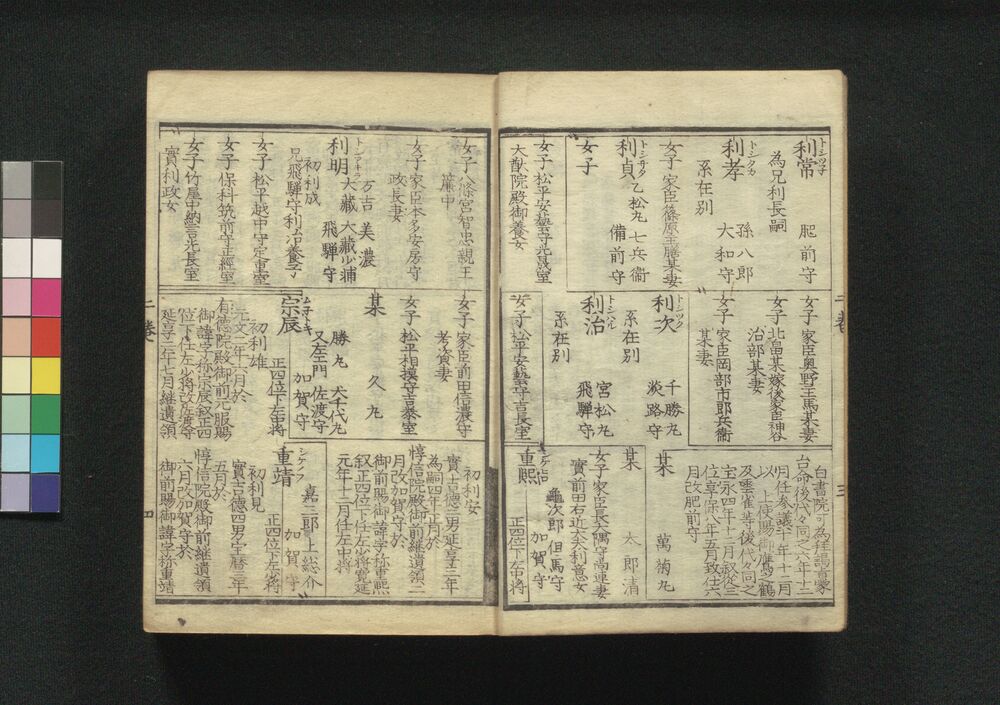 トシツネ
利常 肥前守
為兄利長嗣
トシタカ
利孝 孫八郎
大和守
系在別
女子 家臣篠原主膳某妻
トシサダ
利貞 乙松丸 七兵衛
備前守
女子
女子 松平安藝守光晟室
大猷院殿御養女
女子 家臣奥野主馬某妻
女子 北畠某嫁後家臣神谷
治部某妻
女子 家臣岡部市郎兵衛
某妻
トシツグ
利次 千勝丸
淡路守
系在別
トシハル
利治 宮松丸
飛騨守
系在別
女子 松平安藝守吉長室
白書院可為拝謁之旨蒙
台命後代々同之六年十三
月任参議十年十二月
以 上使賜御鷹之鶴
及雲雀等後代々同之
宝永四年十二月叙従三
位享保八年五月致仕六
月改肥前守
某 萬菊丸
某 太郎清
女子 家臣長大隅守高連妻
實前田右近大夫利意女
重煕 亀次郎 但馬守
加賀守
正四位下左中将
女子 八條宮智忠親王
簾中
女子 家臣本多安房守
政長妻
トシアキラ
利明 万吉 美濃
大蔵 大蔵少輔
飛騨守
初利成
兄飛騨守利治養子
女子 松平越中守定重室
女子 保科筑前守正經室
女子 竹屋中納言光長室
實利政女
女子 家臣前田信濃守
孝資妻
女子 松平相摸守吉泰室
某 久丸
勝丸 犬千代丸
又左門 佐渡守
宗辰 加賀守
正四位下左中将
初利雄
元文二年六月於
有徳院殿御前元服賜
御諱字称宗辰叙正四
位下任左少将改佐渡守
延享二年七月継遺領
初利安
實吉徳二男延享三年
為嗣四年正月於
惇信院殿御前継遺領二
月改加賀守於
御前賜御諱字称重煕
叙正四位下任左少将寛延
元年十二月任左中将
シゲノブ
重靖 嘉三郎 上総介
加賀守
正四位下左少将
初利見
實吉徳四男宝暦三年
五月於
惇信院殿御前継遺領
六月改加賀守於
御前賜御諱字称重靖
二巻 三
二巻 四